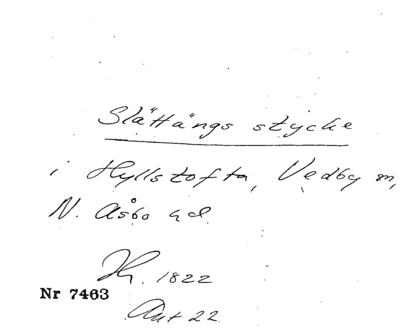 Slättängs stycke
i Hyllstofta, Vedby sn,
N. Åsbo hd.
Kr. 1822
Nr 7463
Ant 22